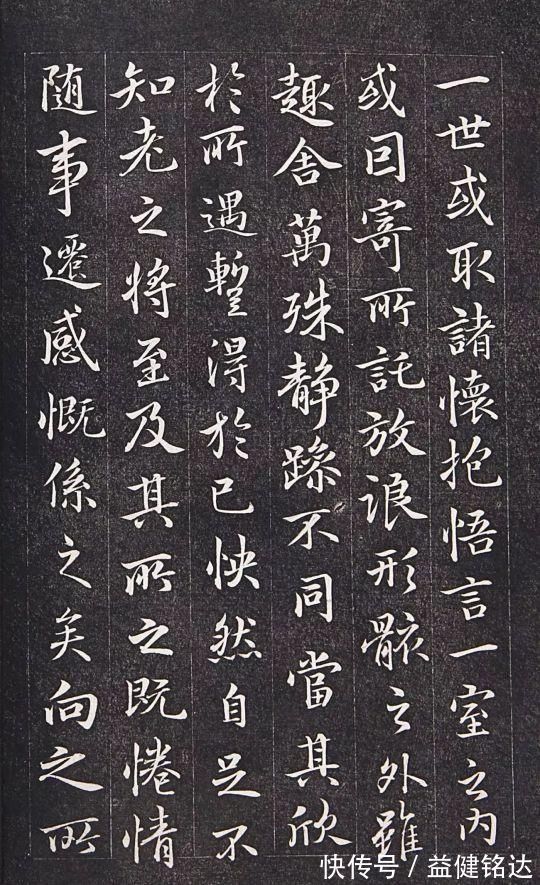 一世或取諸懷抱悟言一室之内
或因寄所託放浪形骸之外雖
趣舍萬殊静躁不同當其欣
於所遇蹔得於己怏然自足不
知老之將至及其所之既惓情
随事遷感慨係之矣向之所
快传号 / 益健铭达